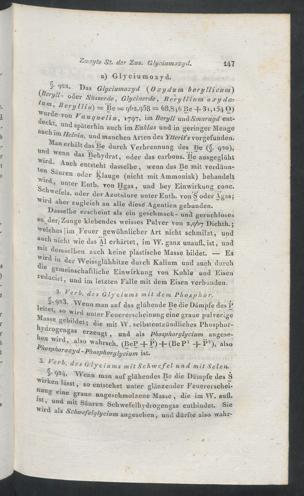 Zweyte St. der Zus. Glyciumoxyd. 447
a) Glyciumoxyd.
§. 922. Das Glyciumoxyd (Oxydum beryllicum)
(Beryll- oder Süsserde, Glycinerde, Beryllium oxyda-
tum, Beryllia) = Be = 962,958 = 68,846 Be + 31,154 O)
wurde von Vauquelin, 1797, im Beryll und Smaragd ent-
deckt, und späterhin auch im Euklas und in geringer Menge
auch im Helvin, und manchen Arten des Ytterit's vorgefunden.
Man erhält das Be durch Verbrennung des Be (§. 920),
und wenn das Behydrat, oder das carbons. Be ausgeglüht
wird. Auch entsteht dasselbe, wenn das Be mit verdünn-
ten Säuren oder Klauge (nicht mit Ammoniak) behandelt
wird, unter Entb. von Hgas, und bey Einwirkung conc.
Schwefels. oder der Azotsäure unter Entb. von
wird aber zugleich an alle diese Agentien gebunden.
Dasselbe erscheint als ein geschmack- und geruchloses
an der Zunge klebendes weisses Pulver von 2,967 Dichth.;
welches im Feuer gewöhnlicher Art nicht schmilzt, und
auch nicht wie das Al erhärtet, im W. ganz unaufl. ist, und
mit demselben auch keine plastische Masse bildet. — Es
wird in der Weissglühhitze durch Kalium und auch durch
die gemeinschaftliche Einwirkung von Kohle und Eisen
reducirt, und im letzten Falle mit dem Eisen verbunden.
2. Verb. des Glyciums mit dem Phosphor.
§. 923. Wenn man auf das glühende Be die Dämpfe des P
leitet, so wird unter Feuererscheinung eine graue pulverige
Masse gebildet; die mit W. selbstentzündliches Phosphor-
hydrogengas erzeugt, und als Phosphorglycium angese-
hen wird, also wahrsch.
Phosphoroxyd-Phosphorglycium ist.
3. Verb. des Glyciums mit Schwefel und mit Selen.
§. 924. Wenn man auf glühendes Be die Dämpfe des S
wirken lässt, so entstehet unter glänzender Feuererschei-
nung eine graue angeschmolzene Masse, die im W. aufl.
ist, und mit Säuren Schwefelhydrogengas entbindet. Sie
wird als Schwefelglycium angesehen, und dürfte also wahr-